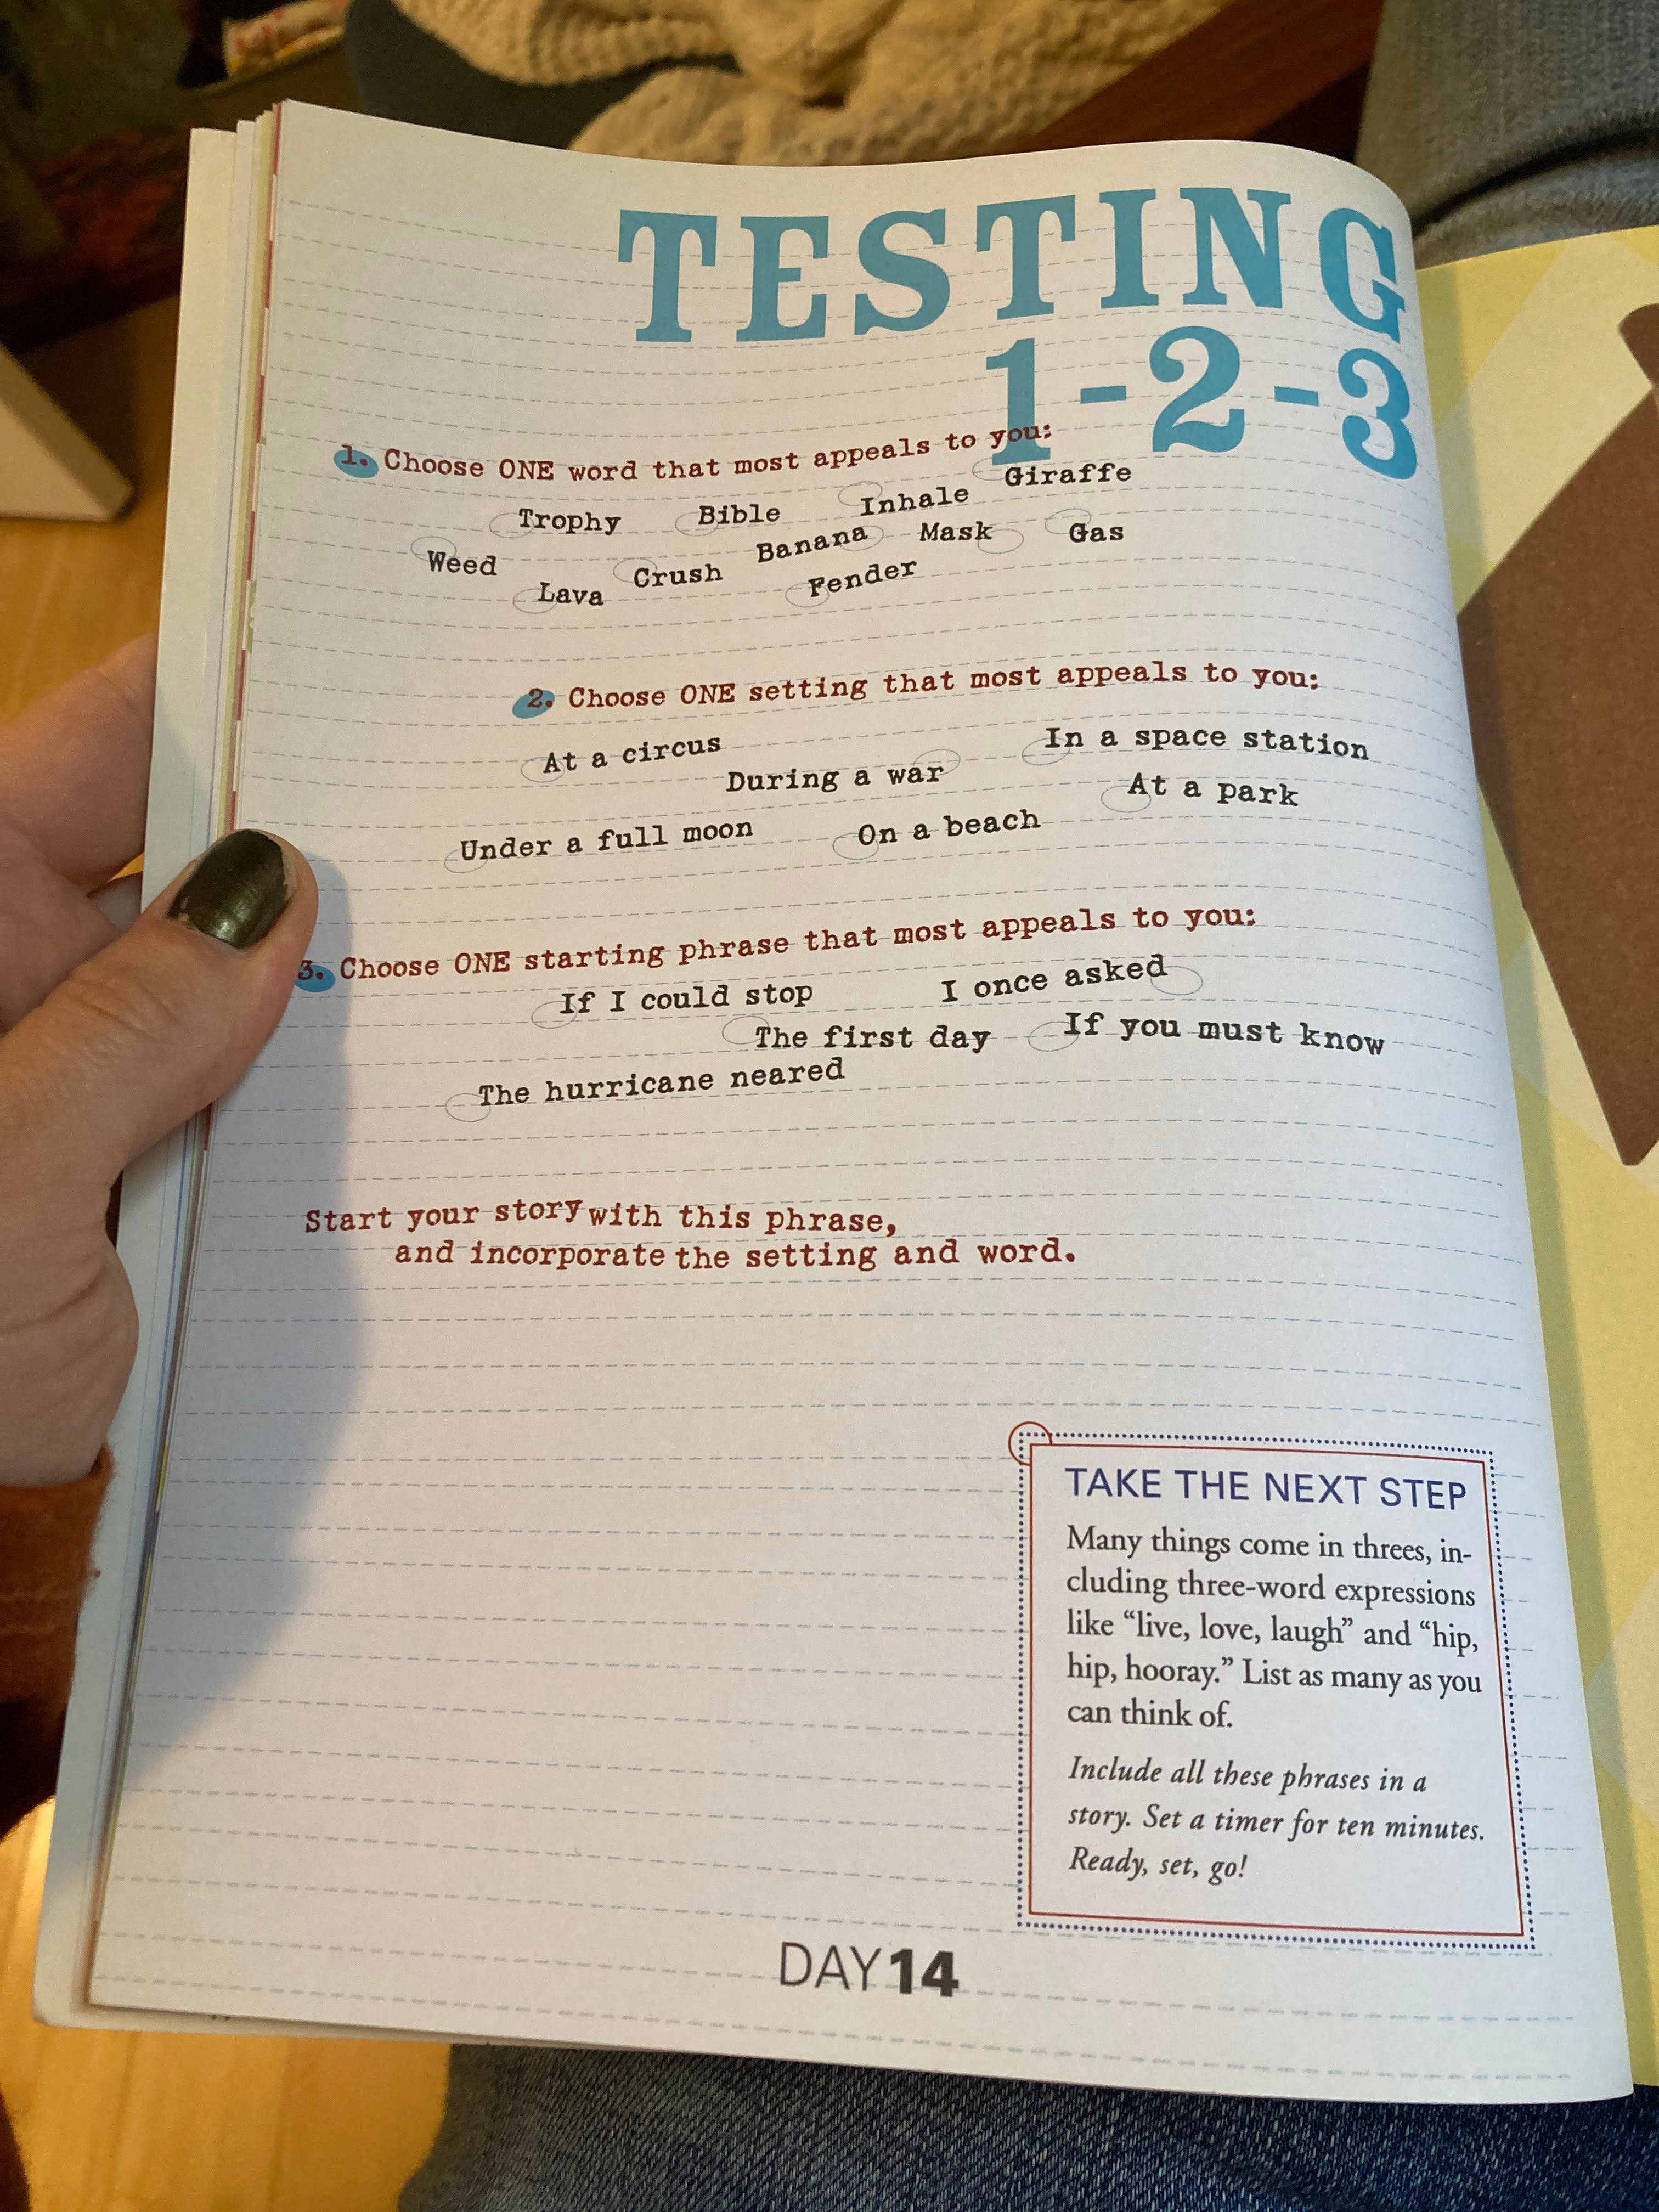 TESTING
1-2-3
1. Choose ONE word that most appeals to you:
Trophy Bible Inhale Giraffe
Weed Crush Banana Mask Gas
Lava Fender
2. Choose ONE setting that most appeals to you:
At a circus During a war In a space station
Under a full moon On a beach At a park
3. Choose ONE starting phrase that most appeals to you:
If I could stop I once asked
The first day If you must know
The hurricane neared
Start your story with this phrase,
and incorporate the setting and word.
TAKE THE NEXT STEP
Many things come in threes, in-
cluding three-word expressions
like “live, love, laugh” and “hip,
hip, hooray.” List as many as you
can think of.
Include all these phrases in a
story. Set a timer for ten minutes.
Ready, set, go!
DAY14